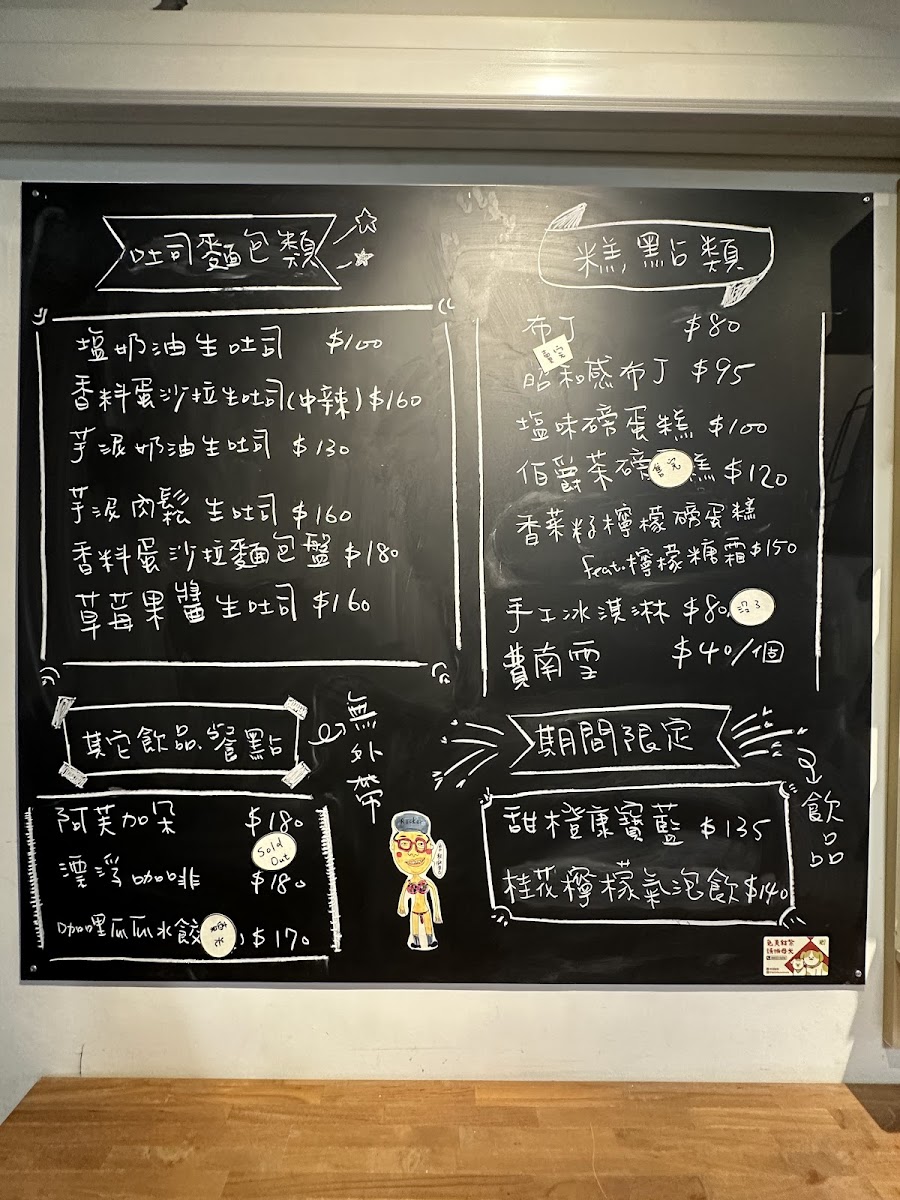 吐司麵包類
塩奶油生吐司 $100
香料蛋沙拉生吐司(中辣) $160
芋泥奶油生吐司 $130
芋泥肉鬆生吐司 $160
香料蛋沙拉麵包盤 $180
草莓果醬生吐司 $160
糕點類
布丁 $80
昭和感布丁 $95
塩味磅蛋糕 $100
伯爵茶磅糕 $120
售完
香菜籽檸檬磅蛋糕
feat.檸檬糖霜 $150
手工冰淇淋 $80
沒了
費南雪 $40/個
其它飲品、餐點
無外帶
阿芙加朵 $180
Sold Out
漂浮咖啡 $180
咖哩瓜瓜水餃 $170
期間限定
飲品
甜橙康寶藍 $135
桂花檸檬氣泡飲 $140
Rocker